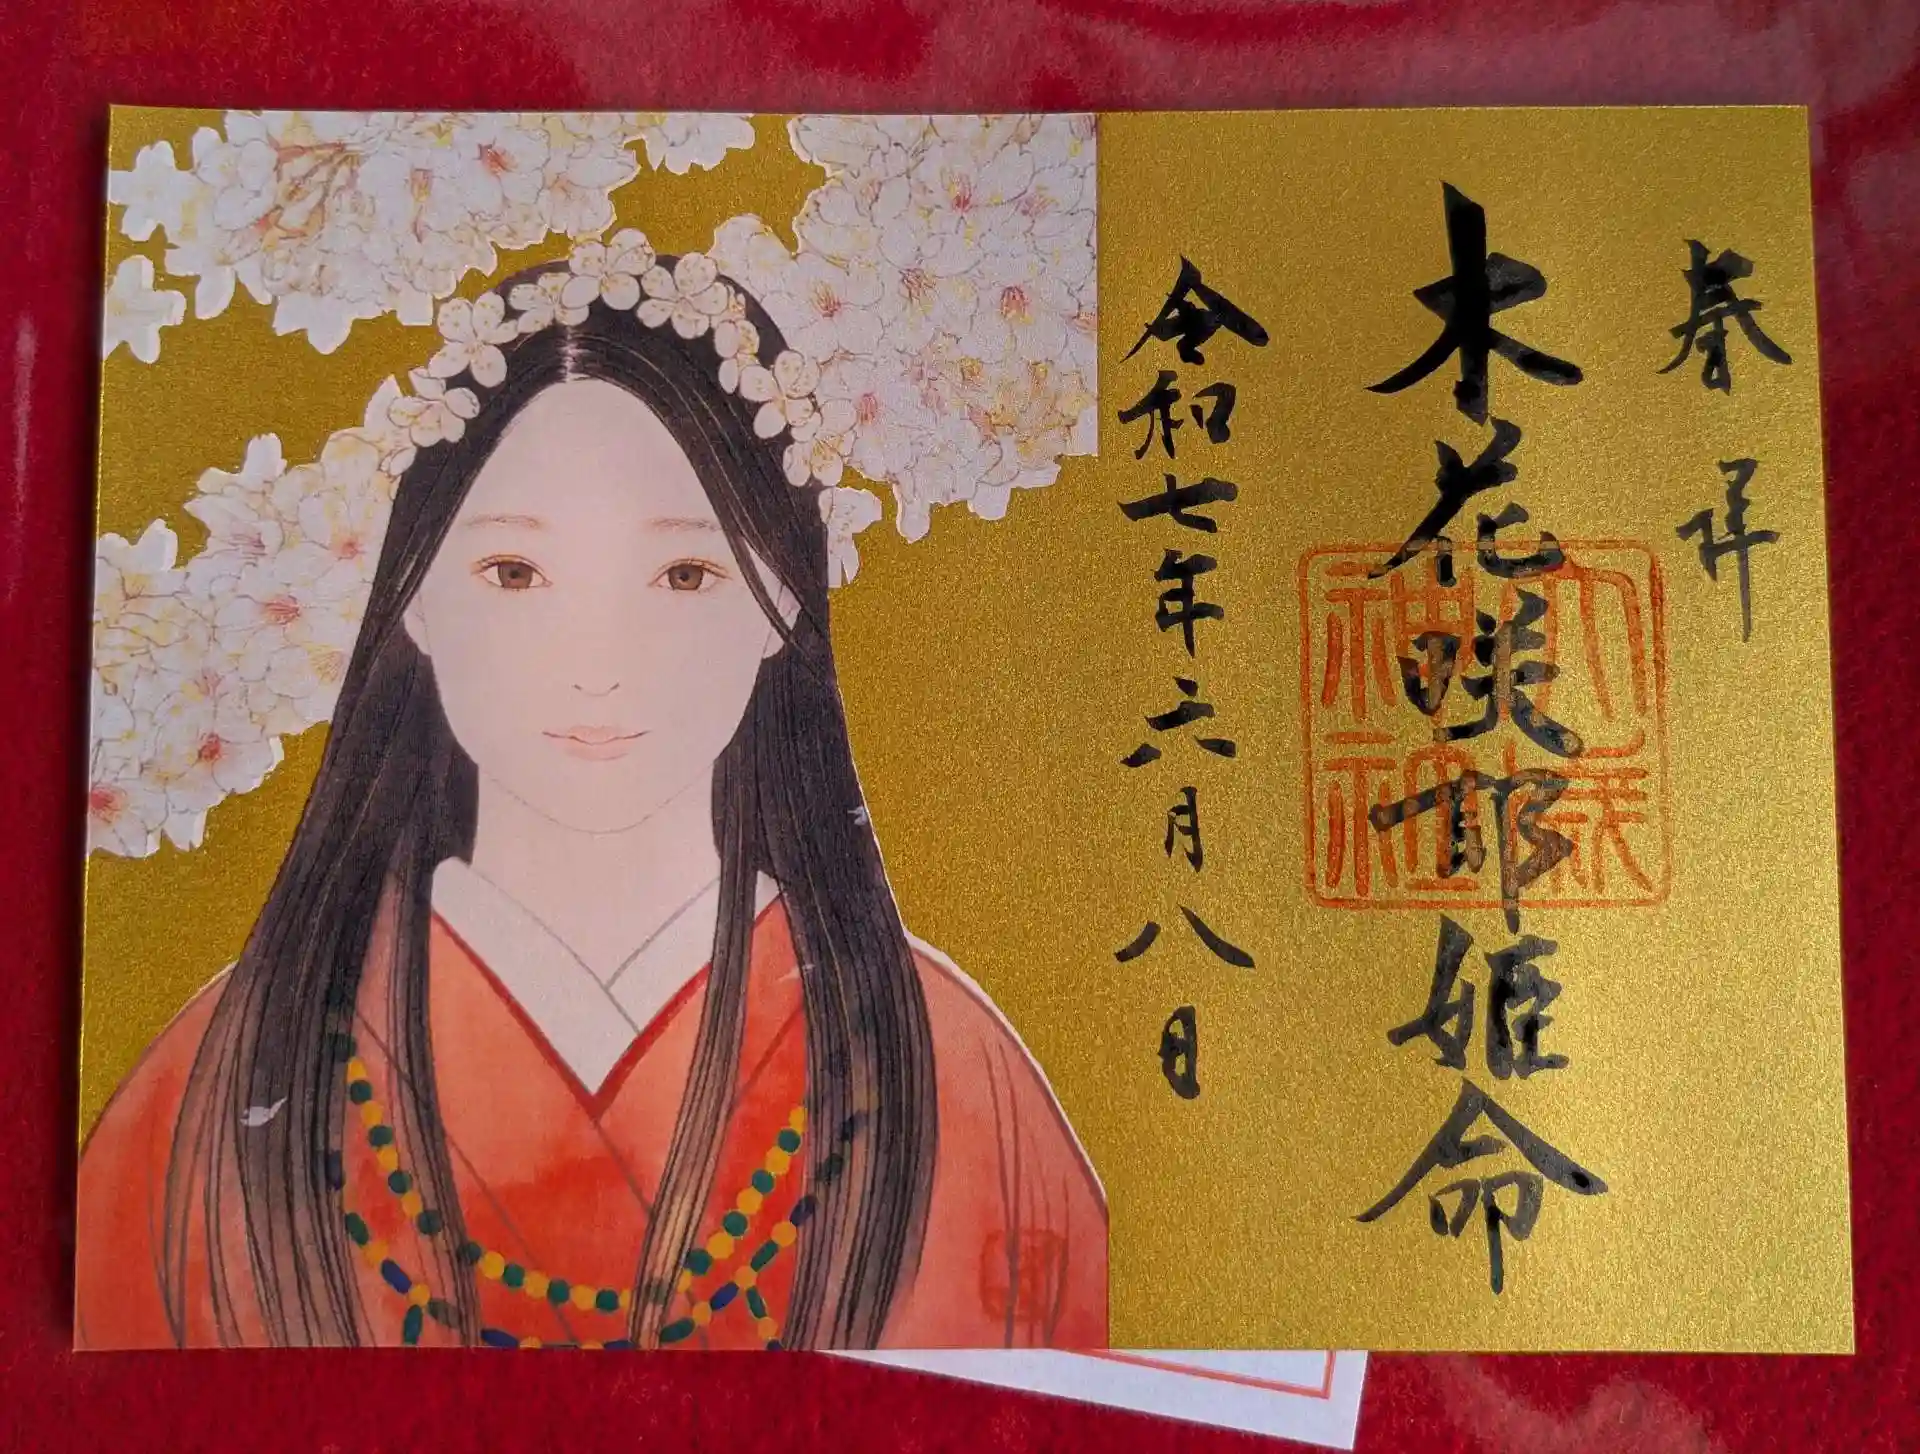 奉拝
木花咲耶姫命
神社
令和七年六月八日